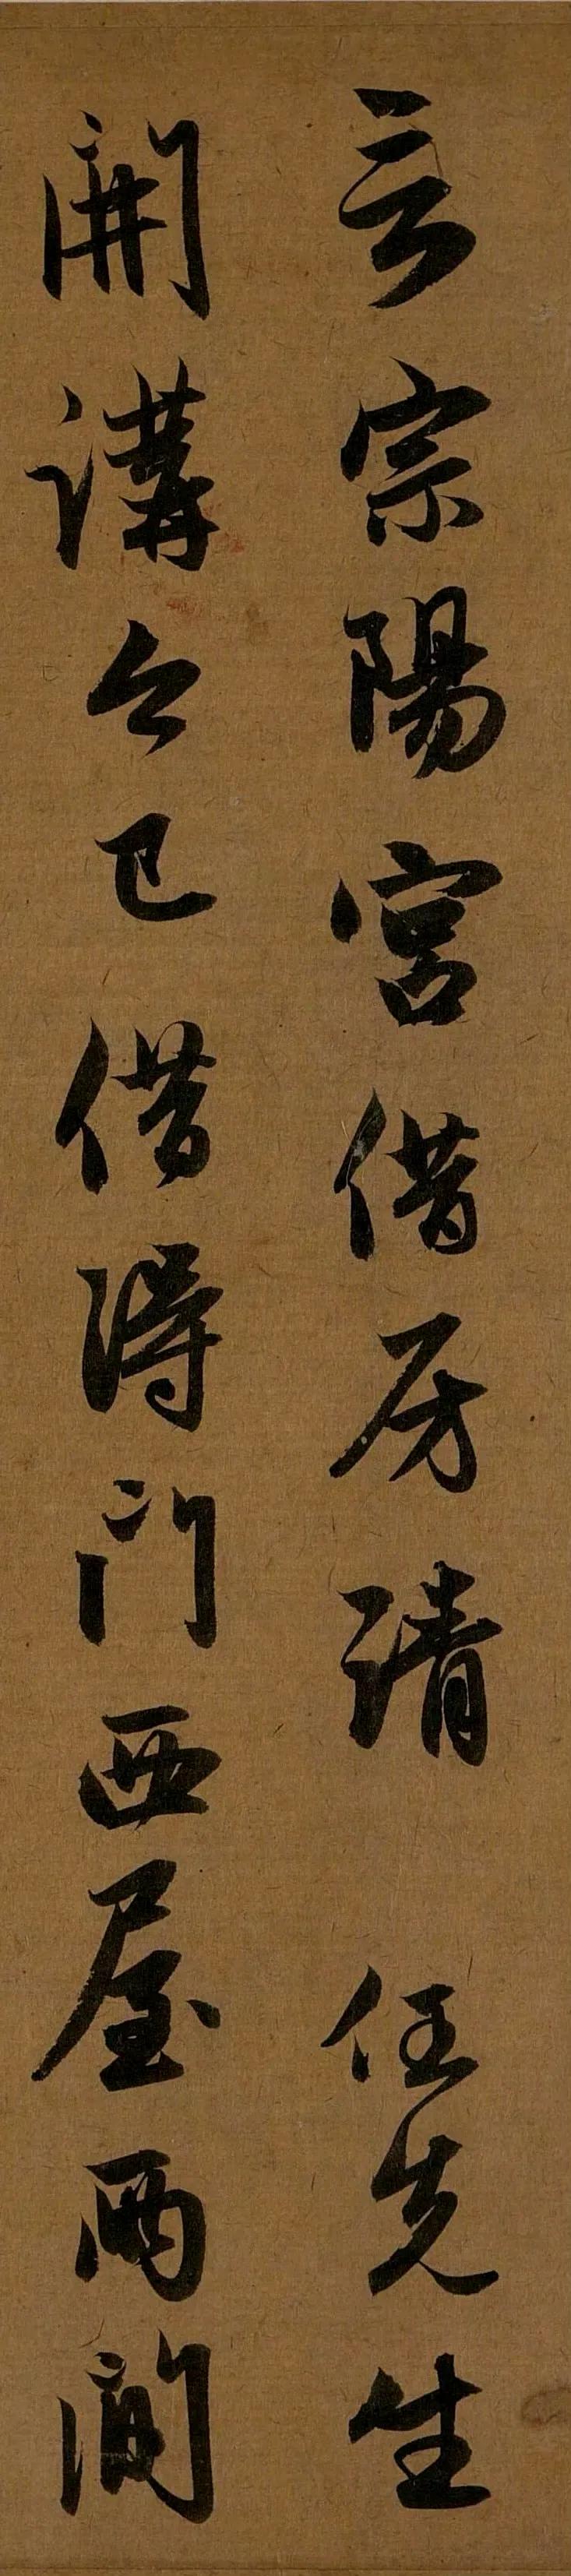 云宗陽宮借房請 任先生
開講今已借得門西屋兩間